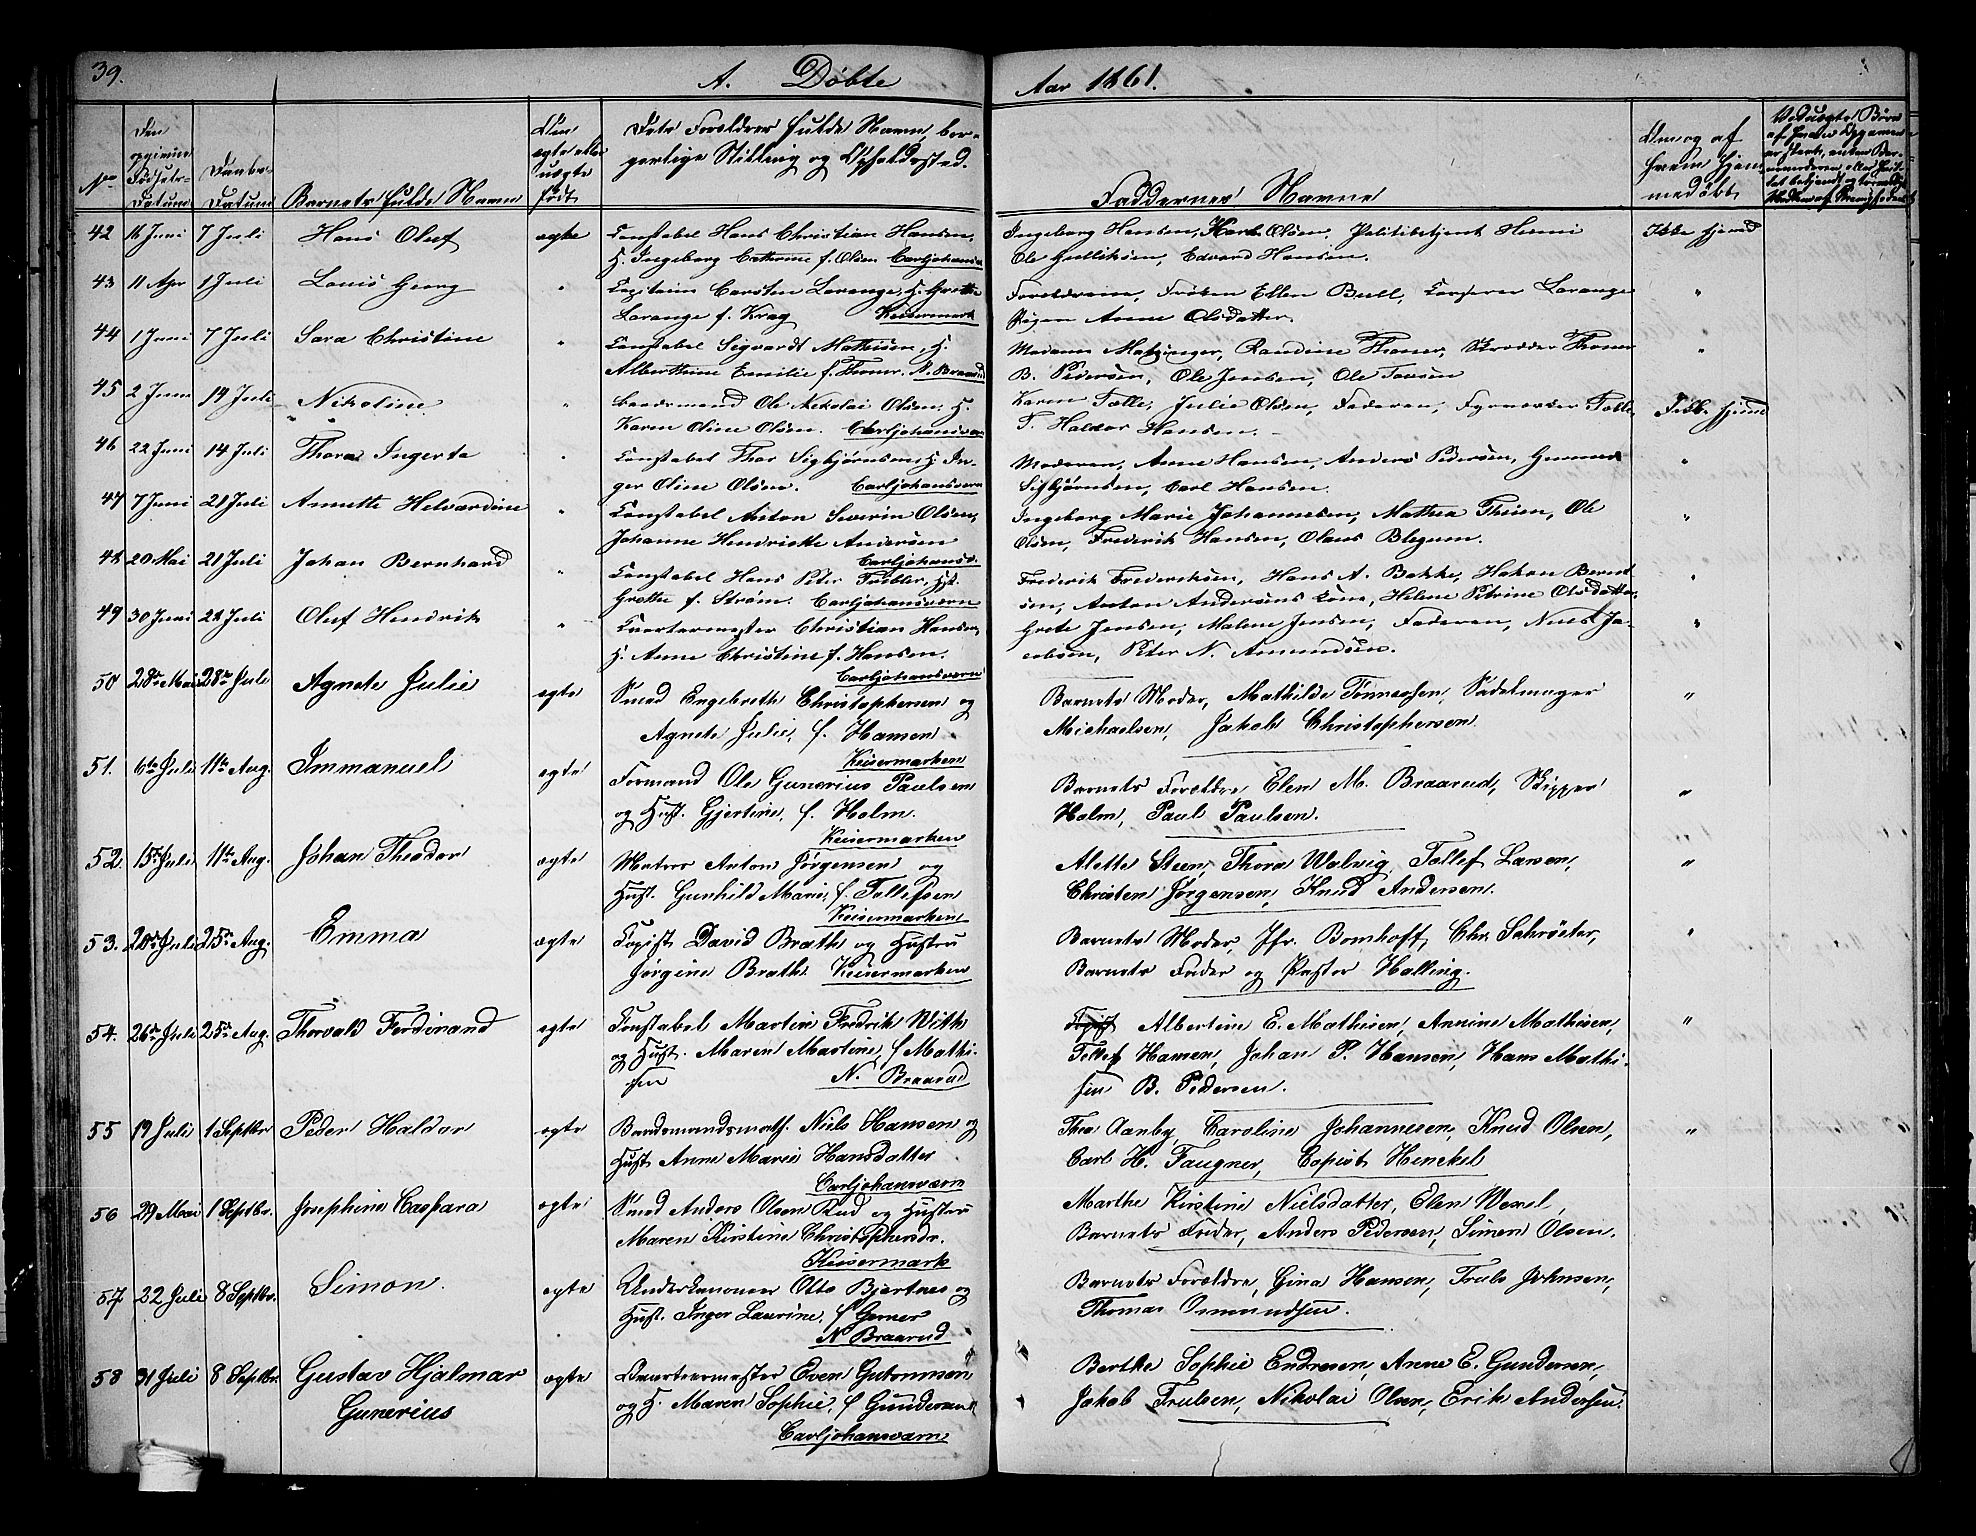 39.
A. Døbte
Aar 1861.
No
Den opgivne Fødsels-Datum
Daabs-Datum
Barnets fulde Navn
Om ægte eller uægte født
Dets Forældres fulde Navn, bor-
gerlige Stilling og Opholdssted.
Faddernes Navne
Om og af hvem hjem-
medøbt
42 16 Juni 7 Juli Hans Oluf ægte Constabel Hans Christian Hansen, Ingeborg Hansen, Olsen, Politibetjent Ikke hjemd
H. Ingeborg Cathrine f. Olsen Carljohansv Ole Gulliksen, Edvard Hansen.
43 11 Apr 7 Juli Louis Georg " Capitain Carsten Lorange, H. Grethe Forældrene, Frøken Ellen Bull, Lorange "
Lorange f. Krag Keisermark Pigen Anne Olsdatter.
44 1 Juni 7 Juli Sara Christine " Constabel Sigvardt Mathisen, H. Madame Matzinger, Randine Thoner, Skrædder Thoner "
Emilie f. Thoner. N. Braarud B. Pedersen, Ole Jensen, Ole
45 2 Juni 14 Juli Nikoline " Baadsmand Ole Nikolai Olsen. H. Karen Tølle, Julie Olsen, Faderen, Tølle, hjemd
Karen Oline Olsen. Carljohansvær T. Haldor Hansen.
46 22 Juni 14 Juli Thora Ingerta " Constabel Thor Sigbjørnsen H. In- Moderen, Anne Hansen, Anders Pedersen, "
ger Oline Olsen. Carljohansvern Sigbjørnsen, Carl Hansen.
47 7 Juni 21 Juli Annette Helvardine " Constabel Anton Severin Olsen, Ingeborg Marie Johannesen, Mathea Ole "
Johanne Hendrikke Andersen Olsen, Frederik Hansen, Olaus Blegum.
Carljohansv.
48 20 Mai 21 Juli Johan Bernhard " Constabel Hans Peter H. Frederik Frederiksen, Hans A. Bakke, Hakon Bernt "
Grethe f. Strøm. Carljohansvern sen, Anton Andersens Kone, Helene Petrine Olsdatter
49 30 Juni 21 Juli Oluf Hendrik " Qvartermester Christian Hansen, Grete Jensen, Malene Jensen, Faderen, Niels Ja- "
H. Anne Christine f. Hansen. cobsen, Peter N. Amundsen.
Carljohansvern
50 28de Mai 28de Juli Agnete Julie ægte Smed Engebreth Christophersen og Barnets Moder, Mathilde Tønnessen, Sadelmager "
Agnete Julie, f. Hansen Michaelsen, Jakob Christophersen
Keisermarken
51. 6te Juli 11te Aug. Immanuel ægte Formand Ole Gunerius Paulsen Barnets Forældre Elen M. Braarud, Skipper "
og Hust. Gjertine, f. Holm. Holm, Paul Paulsen.
Keisermarken
52. 15de Juli 11te Aug. Johan Theodor ægte Matros Anton Jørgensen og Alette Steen, Thora Walvig, Tollef Larsen, "
Hust. Gunhild Marie, f Tollefsen Christen Jørgensen, Knud Andersen.
Keisermarken
53. 20de Juli 25de Aug. Emma ægte Copist David Brath og Hustru Barnets Moder, Jfr. Bomhoff, Chr. Schrøeter, "
Jørgine Brath Keisermarken Barnets Fader og Pastor Halling.
54. 26de Juli 25de Aug. Thorvald Ferdinand ægte Constabel Martin Fredrik With Albertine E. Mathisen, Annine Mathisen, "
og Hust. Maren Martine, f Mathi- Tollef Hansen, Johan P. Hansen, Hans Mathi-
sen N. Braarud sen B. Pedersen.
55 19 Juli 1 Septbr Peder Haldor ægte Baadsmandsmath. Niels Hansen og Thea Aanby, Caroline Johannesen, Knud Olsen, "
Hust Anne Marie Hansdatter Carl H. Faugner, Copist Henckel
Carljohansværn
56 29 Mai 1 Septbr. Josephine Caspara ægte Smed Anders Olsen Rud og Hustru Marthe Kirstine Nielsdatter, Elen Wessel,
Maren Kirstine Christophersdr. Barnets Fader, Anders Pedersen, Simen Olsen.
Keisermark
57. 22 Juli 8 Septbr. Simon. ægte Underkanoner Otto Bjertnes og Barnets Forældre, Gina Hansen, Truls Johnsen,
Hust. Inger Laurine, f Gerner Thomas Osmundsen.
N Braarud
58 31 Juli 8 Septbr. Gustav Hjalmar ægte Qvartermester Even Guttormsen Berthe Sophie Endresen, Anne E. Gundersen,
Gunerius og H. Maren Sophie, f Gundersen Jakob Trulsen, Nikolai Olsen, Erik Andersen.
Carljohansværn